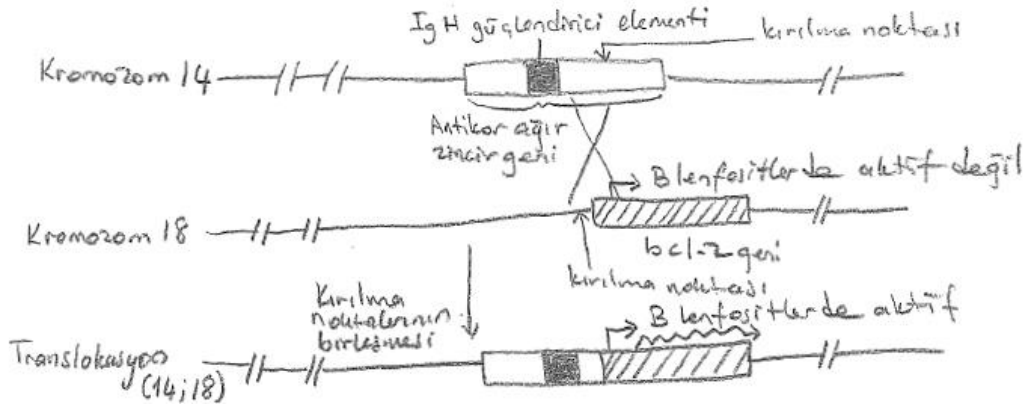 IgH güçlendirici elementi
kırılma noktası
Kromozom 14
Antikor ağır
zincir geni
B lenfositlerde aktif değil
Kromozom 18
bcl-2 geni
kırılma noktası
Kırılma
noktalarının
birleşmesi
B lenfositlerde aktif
Translokasyon
(14;18)